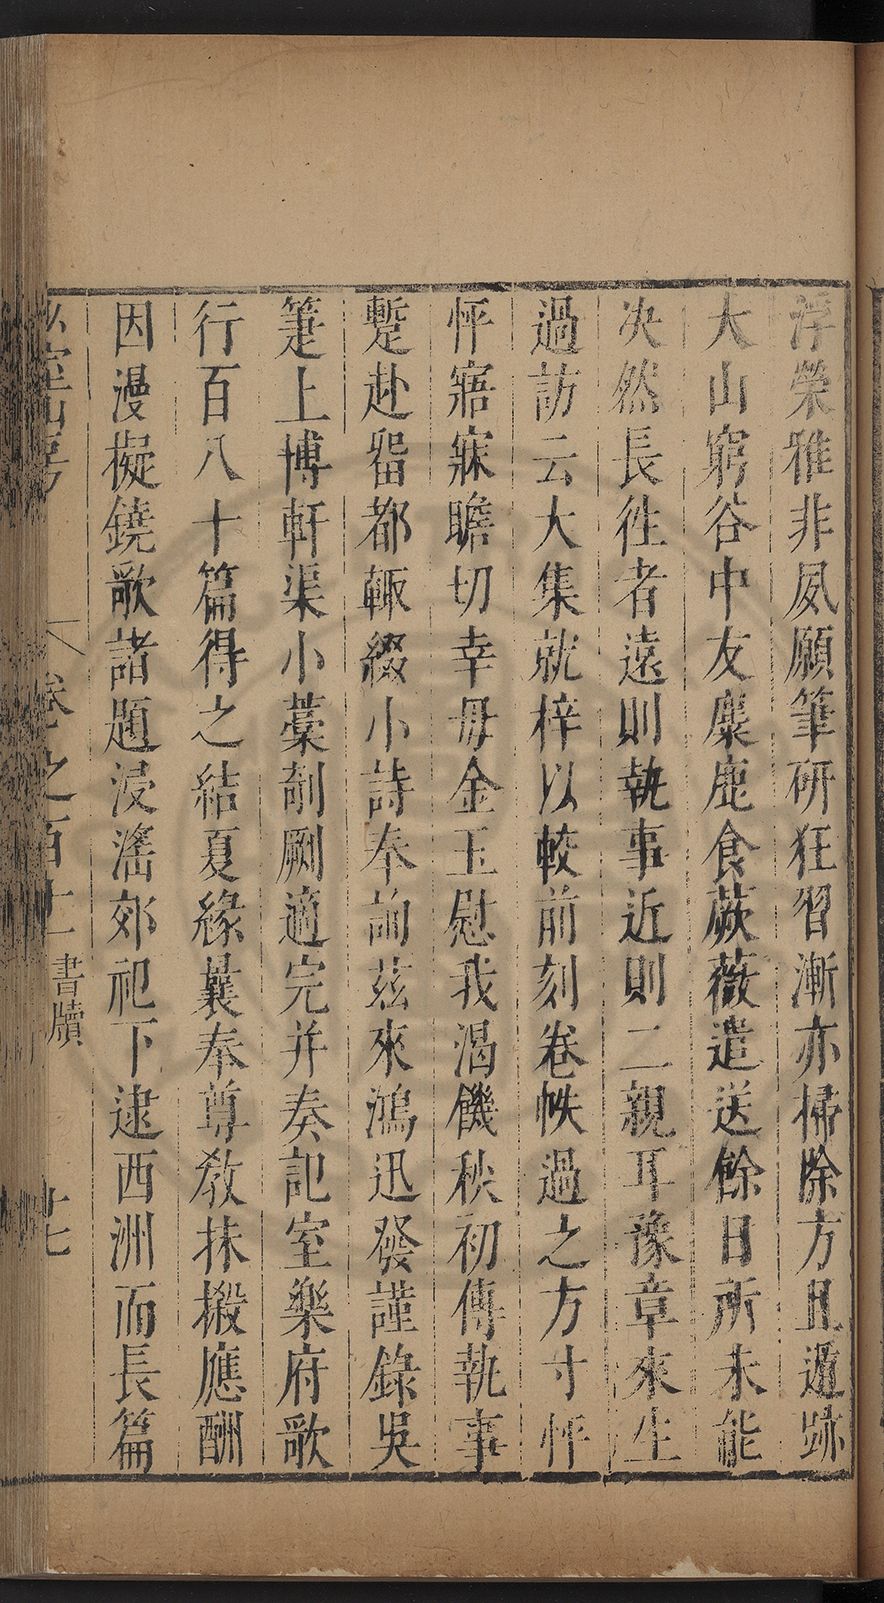 浮榮雅非夙願筆研狂習漸亦掃除方且遁跡
大山窮谷中友麋鹿食蕨薇遣送餘日所未能
决然長徃者遠則執事近則二親耳豫章來生
過訪云大集就梓以較前刻卷帙過之方寸怦
怦寤寐瞻切幸毋金玉慰我渴饑秋初傳執事
蹔赴畱都輙綴小詩奉詢茲來鴻迅發謹錄吳
箑上博軒渠小藁剞劂適完并奏記室樂府歌
行百八十篇得之結夏緣曩奉尊敎抹摋應酬
因漫擬鐃歌諸題浸滛郊祀下逮西洲而長篇
卷之百十一 書牘 廿七